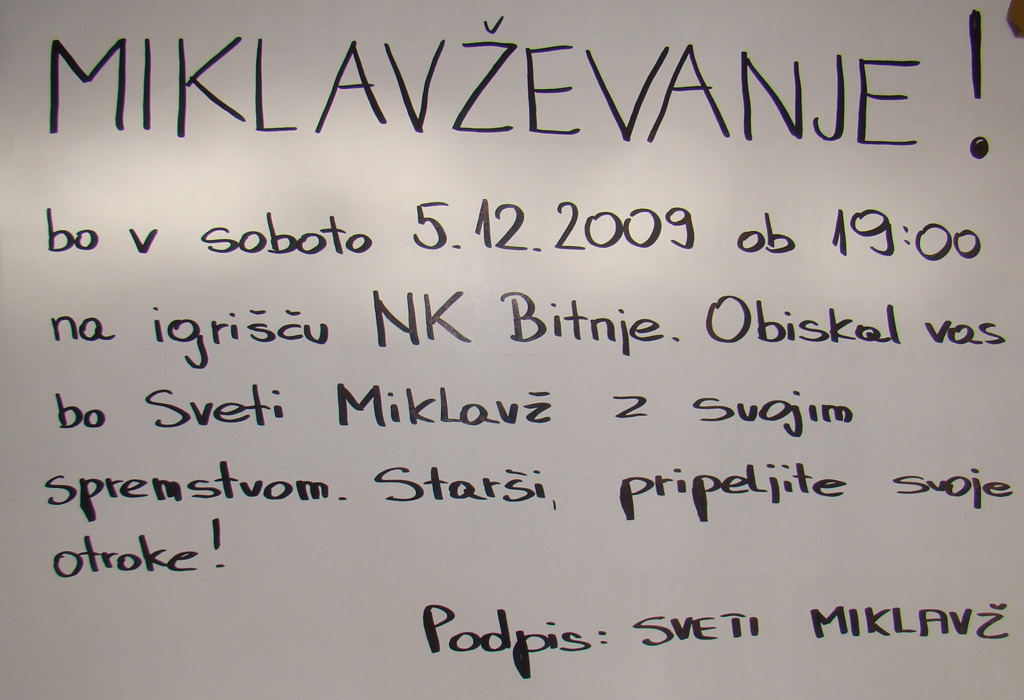 MIKLAVŽEVANJE!
bo v soboto 5.12.2009 ob 19:00
na igrišču NK Bitnje. Obiskal vas
bo Sveti Miklavž z svojim
spremstvom. Starši, pripeljite svoje
otroke!
Podpis: SVETI MIKLAVŽ